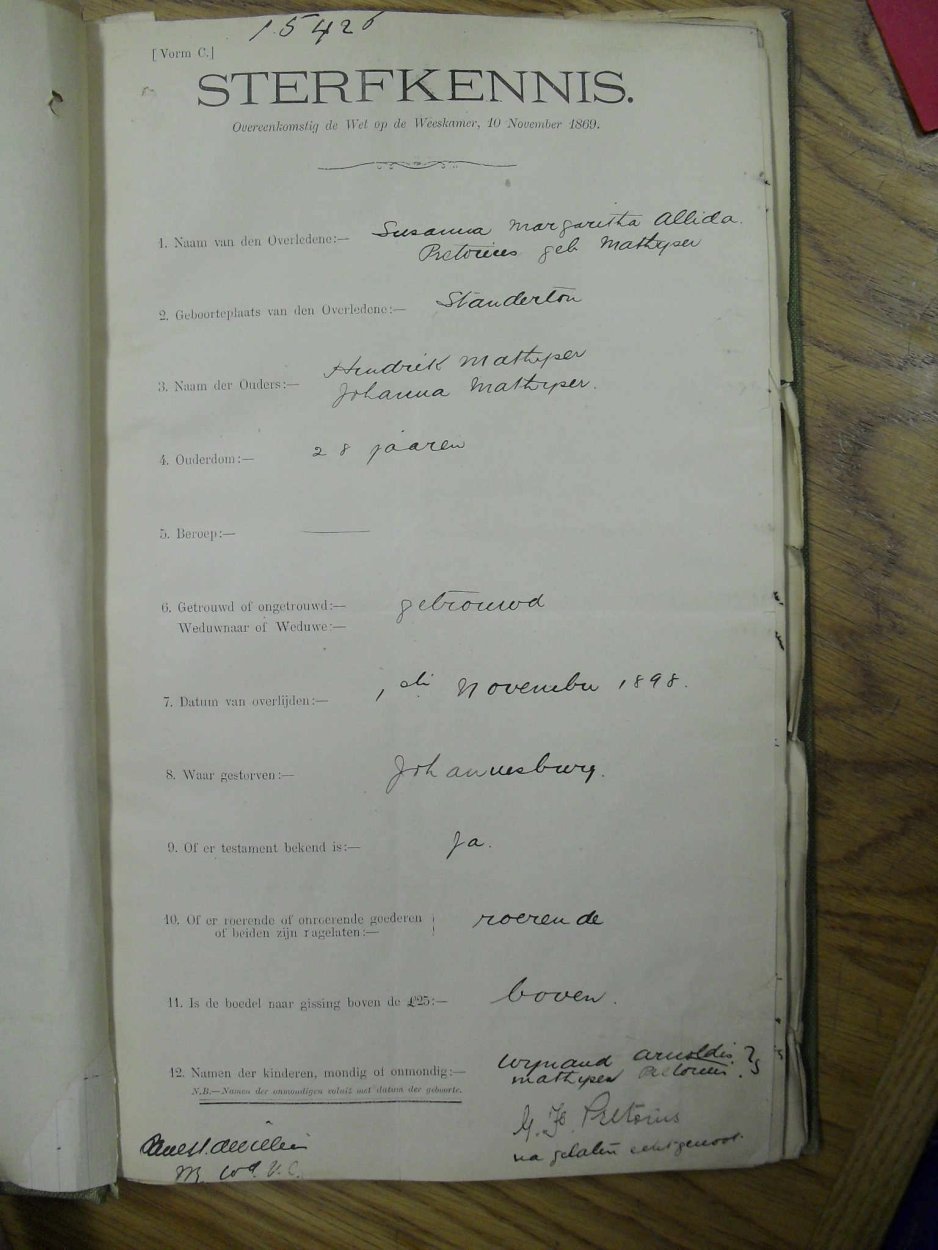 15426
[Vorm C.]
STERFKENNIS.
Overeenkomstig de Wet op de Weeskamer, 10 November 1869.
1. Naam van den Overledene:— Susanna Margaritha Allida
Pretorius geb Mathyser
2. Geboorteplaats van den Overledene:— Standerton
3. Naam der Ouders:— Hendrik Mathyser
Johanna Mathyser.
4. Ouderdom:— 28 jaaren
5. Beroep:—
6. Getrouwd of ongetrouwd:— getrouwd
Weduwnaar of Weduwe:—
7. Datum van overlijden:— 1 November 1898.
8. Waar gestorven:— Johannesburg.
9. Of er testament bekend is:— Ja.
10. Of er roerende of onroerende goederen roerende
of beiden zijn nagelaten:—
11. Is de boedel naar gissing boven de £25:— boven.
12. Namen der kinderen, mondig of onmondig:— Wynand Arnoldis
Mathyser Pretorius
N.B.—Namen der onmondigen voluit met datum der geboorte.
Pretorius
na gelaten echtgenoot.